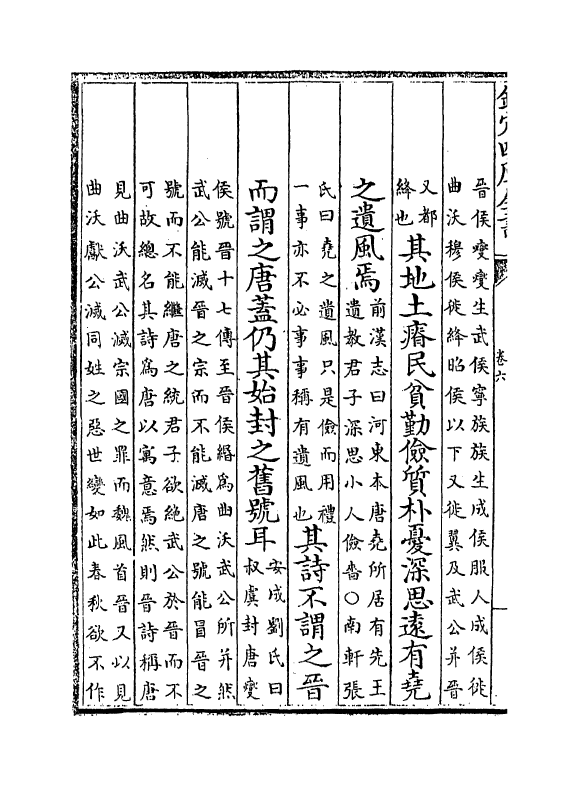 欽定四庫全書
卷六
晉侯燮燮生武侯寧族族生成侯服人成侯徙
曲沃穆侯徙絳昭侯以下又徙翼及武公并晉
又都
絳也
其地土瘠民貧勤儉質朴憂深思遠有堯
之遺風焉
前漢志曰河東本唐堯所居有先王
遺教君子深思小人儉嗇○南軒張
氏曰堯之遺風只是儉而用禮
一事亦不必事事稱有遺風也
其詩不謂之晉
而謂之唐蓋仍其始封之舊號耳
安成劉氏曰
叔虞封唐燮
侯號晉十七傳至晉侯緡為曲沃武公所并然
武公能滅晉之宗而不能滅唐之號能冒晉之
號而不能繼唐之統君子欲絶武公於晉而不
可故總名其詩為唐以寓意焉然則晉詩稱唐
見曲沃武公滅宗國之罪而魏風首晉又以見
曲沃獻公滅同姓之惡世變如此春秋欲不作